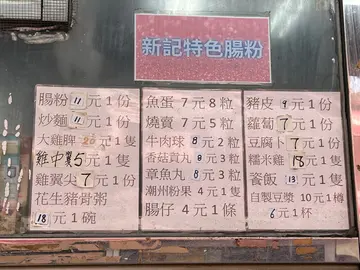 新記特色腸粉
腸粉 11 元1份
炒麵 11 元1份
大雞脾 20 元1隻
雞中翼 5 元1隻
雞翼尖 7 元1份
花生豬骨粥
18 元1碗
魚蛋 7 元 8 粒
燒賣 7 元 5 粒
牛肉球 8 元 2 粒
香菇貢丸 元 3 粒
章魚丸 8 元 3 粒
潮州粉果 4 元 1 隻
腸仔 4 元 1 條
豬皮 9 元1份
蘿蔔 7 元1份
豆腐卜 7 元1份
糯米雞 18 元1隻
瓷飯 13 元1隻
自製豆漿 10 元1樽
6 元1杯